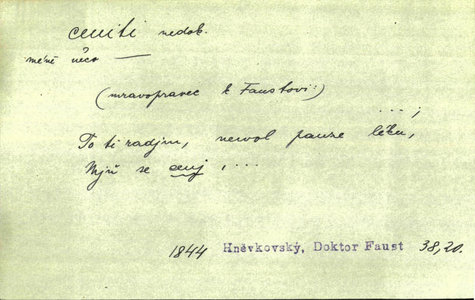 ceniti nedok.
méně něco —
(mravopravec k Faustovi:)
...;
To ti radjm, nevol pauze léku,
se cenj, ...
1844 Hněvkovský, Doktor Faust 38,20.